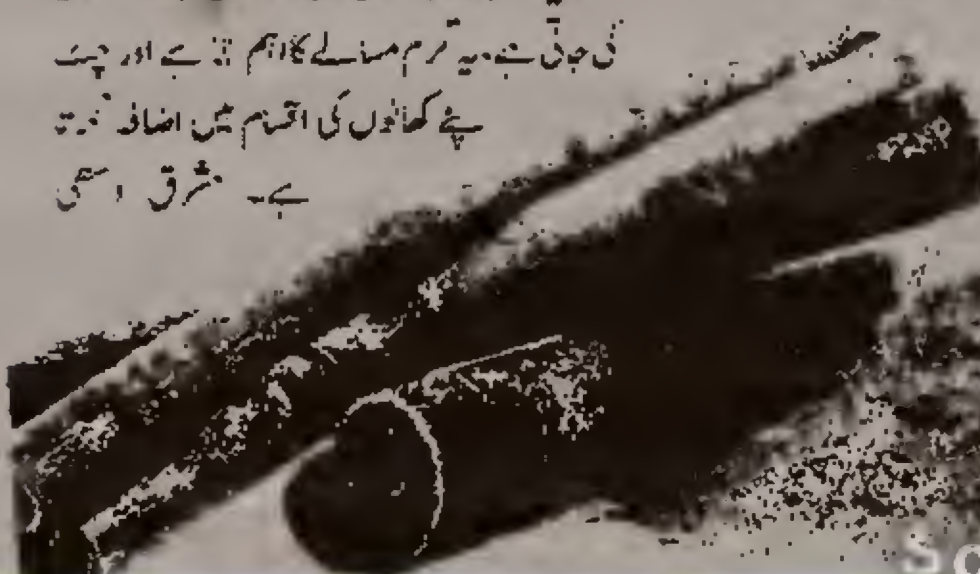 کی جاتی ہے۔ یہ گرم مسالے کا اہم جز ہے اور چٹ
پٹے کھانوں کی اقسام میں اضافہ کرتی
ہے۔ مشرق
S